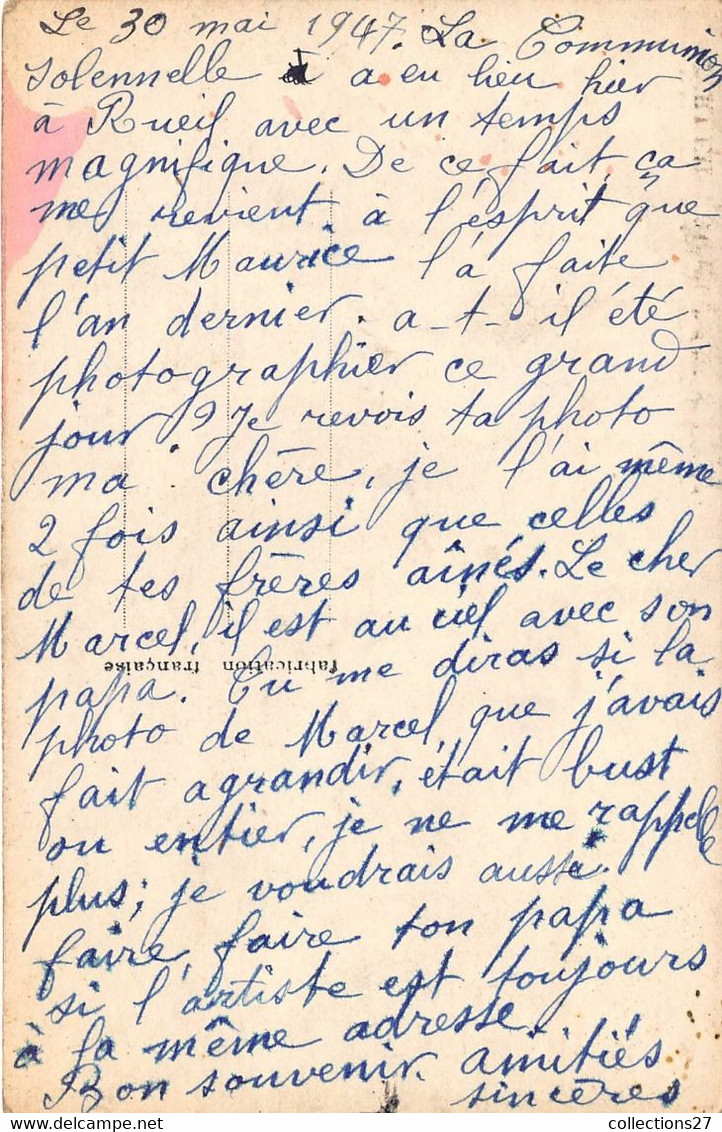 Le 30 mai 1947. La Communion
solennelle a eu lieu hier
à Rueil avec un temps
magnifique. De ce fait ça
me revient à l'esprit que
petit Maurice l'a faite
l'an dernier. a-t-il été
photographier ce grand
jour ? Je revois ta photo
ma chère, je l'ai même
2 fois ainsi que celles
de tes frères aînés. Le cher
Marcel, il est au ciel avec son
fabrication française
papa. Tu me diras si la
photo de Marcel que j'avais
fait agrandir, était bust
ou entier, je ne me rappelle
plus; je voudrais aussi
faire faire ton papa
si l'artiste est toujours
à la même adresse.
Bon souvenir. amitiés
sincères
collections27